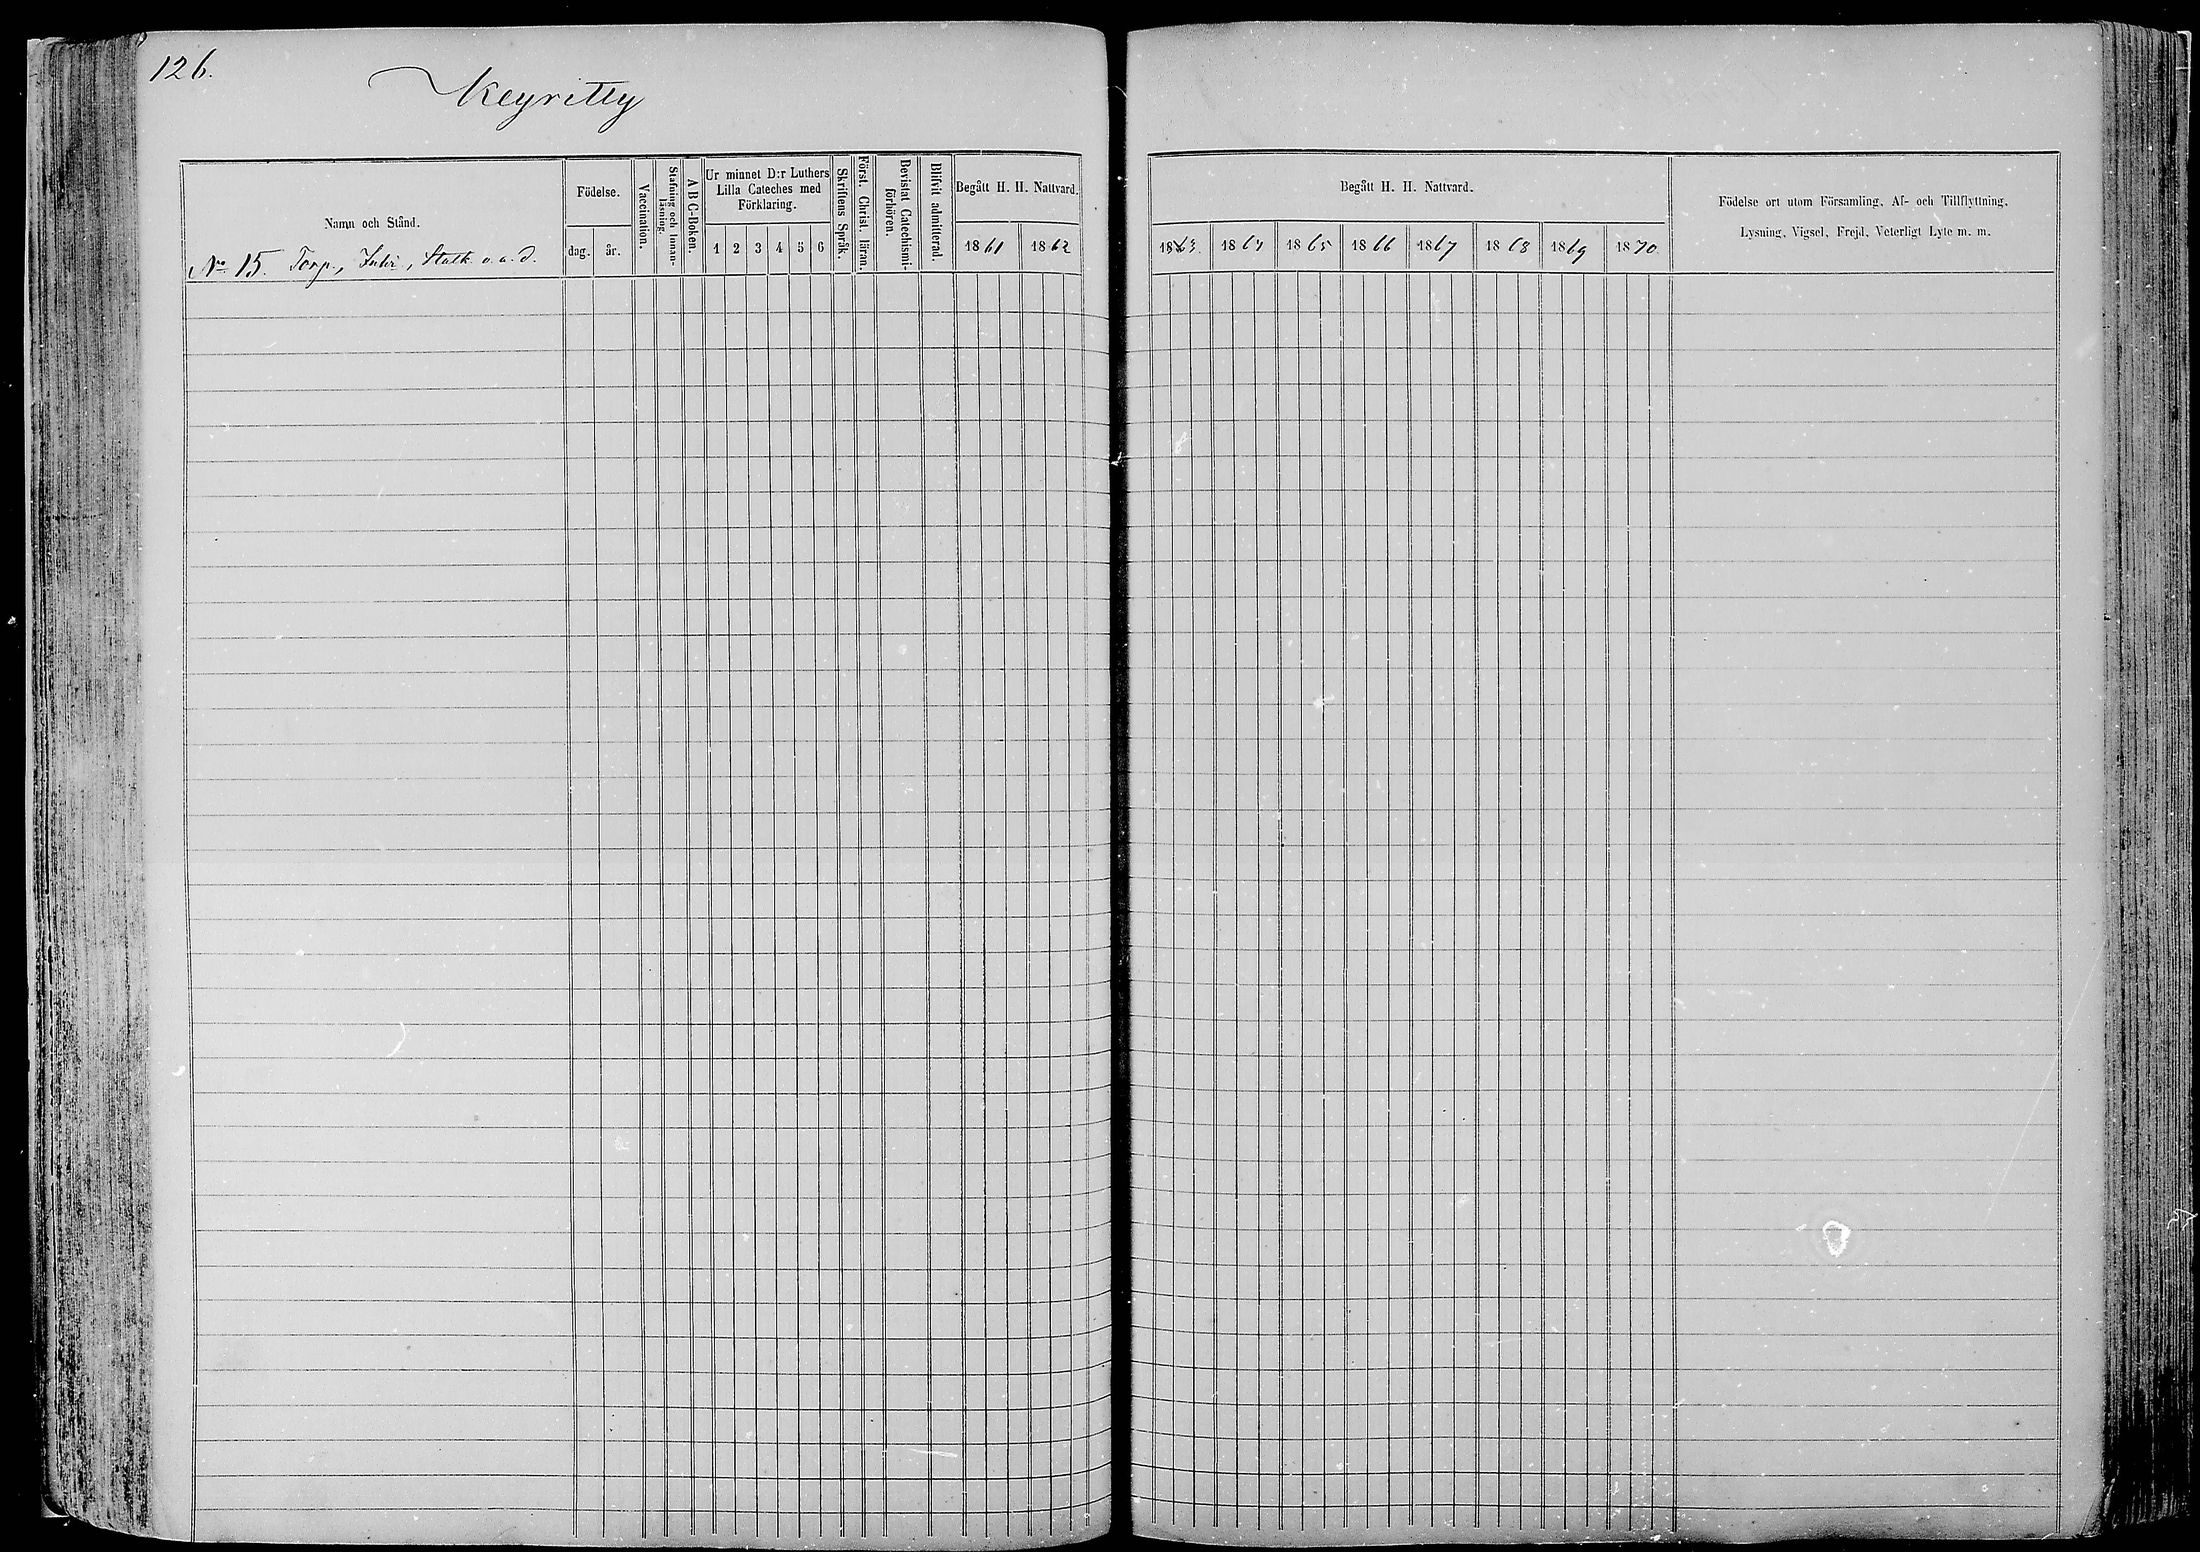 126.
Keyritty
Namn och Stånd.
No 15. Torp., Inhi, Statk. o. a. d.
Födelse.
dag. år.
Vaccination.
Stafning och Innan-
läsning.
A B C-Boken.
Ur minnet D:r Luthers
Lilla Cateches med
Förklaring.
1 2 3 4 5 6
Skriftens Språk.
Först. Christ. läran.
Bevistat Catechismi-
förhören.
Blifvit admitterad.
Begått H. H. Nattvard.
1861 1862
Begått H. H. Nattvard.
1863. 1864 1865 1866 1867 1868 1869 1870.
Födelse ort utom Församling, Af- och Tillflyttning,
Lysning, Vigsel, Frejd, Veterligt Lyte m. m.